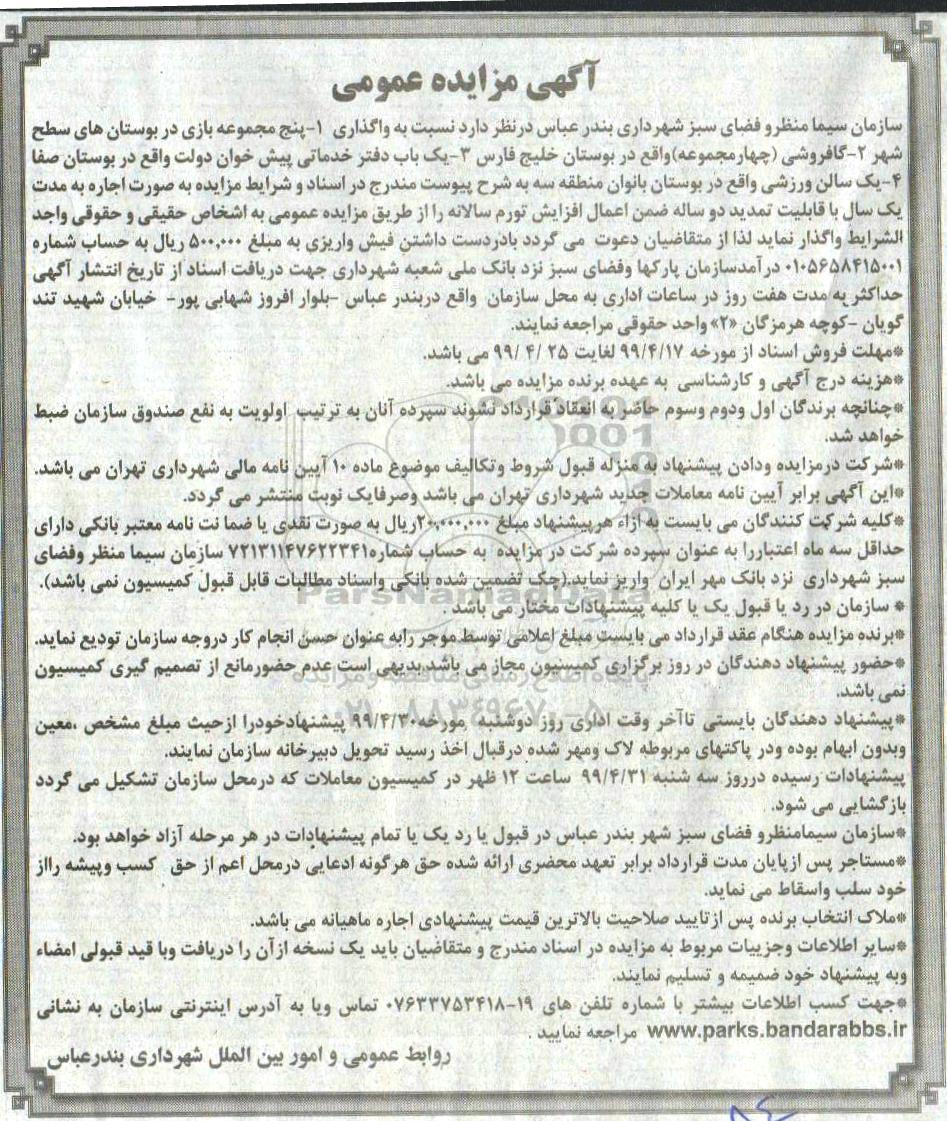 آگهی مزایده عمومی
سازمان سیما منظرو فضای سبز شهرداری بندر عباس درنظر دارد نسبت به واگذاری ۱-پنج مجموعه بازی در بوستان های سطح
شهر ۲-گافروشی (چهارمجموعه)واقع در بوستان خلیج فارس ۳-یک باب دفتر خدماتی پیش خوان دولت واقع در بوستان صفا
۴-یک سالن ورزشی واقع در بوستان بانوان منطقه سه به شرح پیوست مندرج در اسناد و شرایط مزایده به صورت اجاره به مدت
یک سال با قابلیت تمدید دو ساله ضمن اعمال افزایش تورم سالانه را از طریق مزایده عمومی به اشخاص حقیقی و حقوقی واجد
الشرایط واگذار نماید لذا از متقاضیان دعوت می گردد بادردست داشتن فیش واریزی به مبلغ ۵۰۰,۰۰۰ ریال به حساب شماره
۰۱۰۵۶۵۸۴۱۵۰۰۱ درآمدسازمان پارکها وفضای سبز نزد بانک ملی شعبه شهرداری جهت دریافت اسناد از تاریخ انتشار آگهی
حداکثر به مدت هفت روز در ساعات اداری به محل سازمان واقع دربندر عباس -بلوار افروز شهابی پور- خیابان شهید تند
گویان -کوچه هرمزگان «۲» واحد حقوقی مراجعه نمایند.
*مهلت فروش اسناد از مورخه ۹۹/۴/۱۷ لغایت ۲۵ /۴ /۹۹ می باشد.
*هزینه درج آگهی و کارشناسی به عهده برنده مزایده می باشد.
*چنانچه برندگان اول ودوم وسوم حاضر به انعقاد قرارداد نشوند سپرده آنان به ترتیب اولویت به نفع صندوق سازمان ضبط
خواهد شد.
*شرکت درمزایده ودادن پیشنهاد به منزله قبول شروط وتکالیف موضوع ماده ۱۰ آیین نامه مالی شهرداری تهران می باشد.
*این آگهی برابر آیین نامه معاملات جدید شهرداری تهران می باشد وصرفایک نوبت منتشر می گردد.
*کلیه شرکت کنندگان می بایست به ازاء هرپیشنهاد مبلغ ۲۰,۰۰۰,۰۰۰ریال به صورت نقدی یا ضما نت نامه معتبر بانکی دارای
حداقل سه ماه اعتباررا به عنوان سپرده شرکت در مزایده به حساب شماره۷۲۱۳۱۱۴۷۶۲۲۳۴۱ سازمان سیما منظر وفضای
سبز شهرداری نزد بانک مهر ایران واریز نماید.(چک تضمین شده بانکی واسناد مطالبات قابل قبول کمیسیون نمی باشد).
* سازمان در رد یا قبول یک یا کلیه پیشنهادات مختار می باشد .
*برنده مزایده هنگام عقد قرارداد می بایست مبلغ اعلامی توسط موجر رابه عنوان حسن انجام کار دروجه سازمان تودیع نماید.
*حضور پیشنهاد دهندگان در روز برگزاری کمیسیون مجاز می باشد.بدیهی است عدم حضورمانع از تصمیم گیری کمیسیون
نمی باشد.
*پیشنهاد دهندگان بایستی تاآخر وقت اداری روز دوشنبه مورخه۹۹/۴/۳۰ پیشنهادخودرا ازحیث مبلغ مشخص ،معین
وبدون ابهام بوده ودر پاکتهای مربوطه لاک ومهر شده درقبال اخذ رسید تحویل دبیرخانه سازمان نمایند.
پیشنهادات رسیده درروز سه شنبه ۹۹/۴/۳۱ ساعت ۱۲ ظهر در کمیسیون معاملات که درمحل سازمان تشکیل می گردد
بازگشایی می شود.
*سازمان سیمامنظرو فضای سبز شهر بندر عباس در قبول یا رد یک یا تمام پیشنهادات در هر مرحله آزاد خواهد بود.
*مستاجر پس ازپایان مدت قرارداد برابر تعهد محضری ارائه شده حق هرگونه ادعایی درمحل اعم از حق کسب وپیشه رااز
خود سلب واسقاط می نماید.
*ملاک انتخاب برنده پس ازتایید صلاحیت بالاترین قیمت پیشنهادی اجاره ماهیانه می باشد.
*سایر اطلاعات وجزییات مربوط به مزایده در اسناد مندرج و متقاضیان باید یک نسخه ازآن را دریافت وبا قید قبولی امضاء
وبه پیشنهاد خود ضمیمه و تسلیم نمایند.
*جهت کسب اطلاعات بیشتر با شماره تلفن های ۱۹-۰۷۶۳۳۷۵۳۴۱۸ تماس ویا به آدرس اینترنتی سازمان به نشانی
www.parks.bandarabbs.ir مراجعه نمایید .
روابط عمومی و امور بین الملل شهرداری بندرعباس
ParsNamadData
پایگاه اطلاع رسانی مناقصه و مزایده
۰۲۱-۸۸۳۴۹۶۷۰-۵